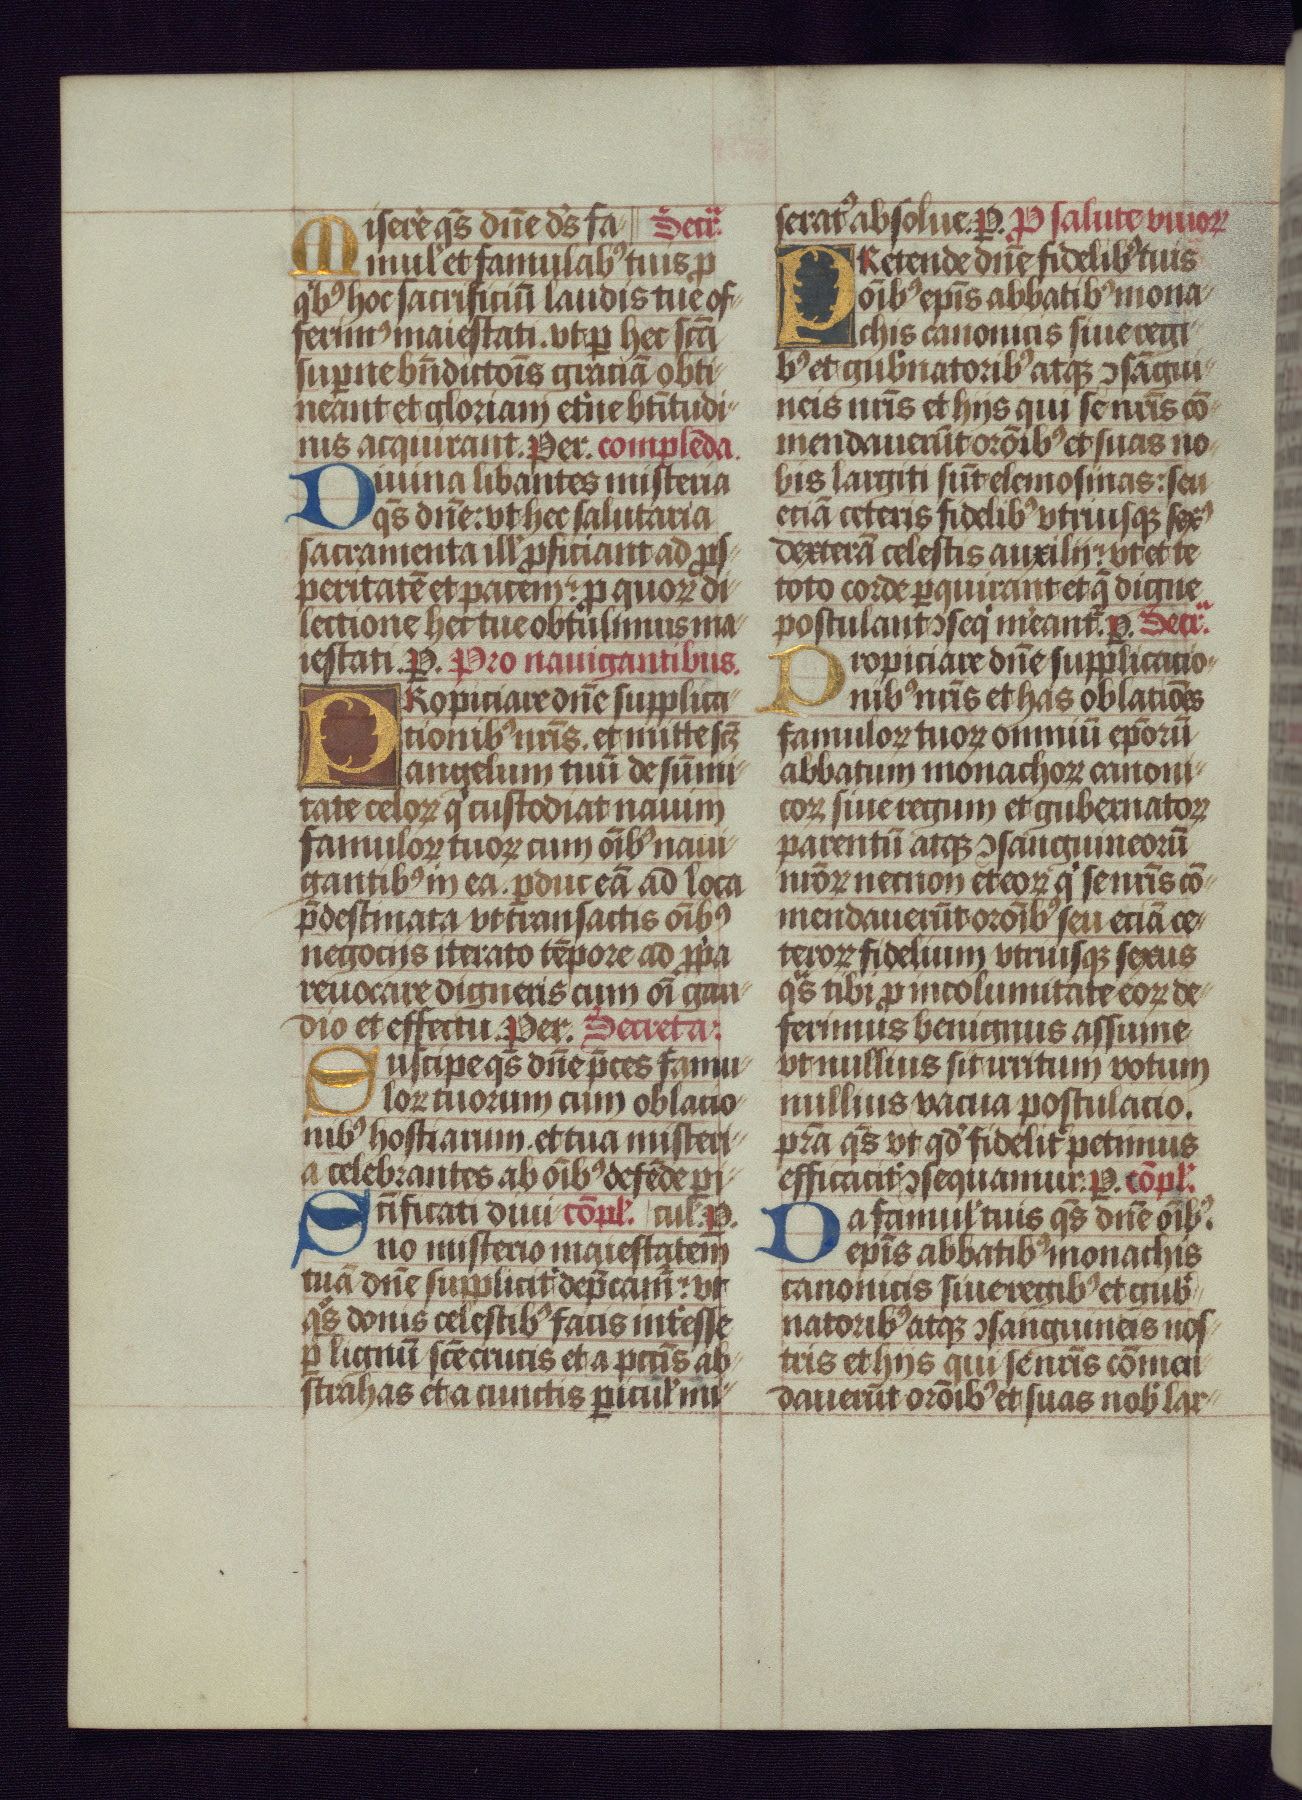 Miserẽ q̃s dñe dš fa‖ Secrͣ.
mul' et famulabꝰ tuis ꝓ
qͥbꝰ hoc sacrificiũ laudis tue of-
ferim̃ꝰ maiestati. vt ꝑ hec scã
suꝑne bñdictõis graciã obti-
neant et gloriam et̾ne btĩtudi-
nis acquirant. Per. complẽda.
Diuina libantes misteria
q̃s dñe: vt hec salutaria
sacramenta ill' ꝓficiant ad ꝓs-
peritatẽ et pacem: ꝓ quoꝝ di-
lectione hec tue obtulimus ma-
iestati. P. Pro nauigantibus.
PRopiciare dñe supplica-
tionibꝰ nr̃is. et mitte sc̃ꝫ
angelum tuũ de sũmi-
tate celoꝝ qͥ custodiat nauim
famuloꝝ tuoꝝ cum oĩbꝰ naui-
gantibꝰ in ea. ꝑduc eã ad loca
p̃destinata vt transactis oĩbꝰ
negocijs iterato tẽpore ad ꝓpͥa
reuocare digneris cum oĩ gau-
dio et effectu. Per. Secreta:
Suscipe q̃s dñe p̃ces famu-
loꝝ tuorum cum oblacio-
nibꝰ hostiarum. et tua misteri-
a celebrantes ab oĩbꝰ defẽde pi-
Sc̃ificati diui cõpl'. | cul'. P.
no misterio maiestatem̃
tuã dñe supplicit̾ dep̃cam̃: vt
qͦs donis celestibꝰ facis int̾esse
ꝑ lignũ sc̃e crucis et a pcc̃is ab-
strahas et a cunctis ꝑicul' mi-
seratꝰ absolue. P. P salute viuoꝝ
PRetende dñe fidelibꝰ tuis
oĩbꝰ ep̃is abbatibꝰ mona-
chis canonicis siue regi-
bꝰ et gub̾natoribꝰ atqꝫ ɔsãgui-
neis nr̃is et hijs qui se nr̃is cõ-
mendauerũt orõibꝰ et suas no-
bis largiti sũt elemosinas: seu
eciã ceteris fidelibꝰ vtriusqꝫ sexꝰ
dexterã celestis auxilij: vt et te
toto corde ꝑquirant et q̃ digne
postulant ɔseqͥ mereant᷑. P. Secrͣ.
Propiciare dñe supplicacio-
nibꝰ nr̃is et has oblaciões
famuloꝝ tuoꝝ omniũ ep̃orũ
abbatum monachoꝝ canoni-
coꝝ siue regum et gubernatoꝝ
parentũ atqꝫ ɔsanguineorũ
nr̃oꝝ necnon et eoꝝ qͥ se nr̃is cõ-
mendauerũt orõibꝰ seu eciã ce-
teroꝝ fidelium vtriusqꝫ sexus
qͣs tibi ꝓ incolumitate eoꝝ de-
ferimus benignus assume
vt nullius sit irritum votum
nullius vacua postulacio.
pr̃a q̃s vt qd̾ fidelit̾ petimus
efficacit̾ ɔsequamur. P. cõpl'.
Da famul' tuis q̃s dñe oĩbꝰ.
ep̃is abbatibꝰ monachis
canonicis siue regibꝰ et gub̾-
natoribꝰ atqꝫ ɔsanguineis nos-
tris et hijs qui se nr̃is cõmen-
dauerũt orõibꝰ et suas nob̾ lar-